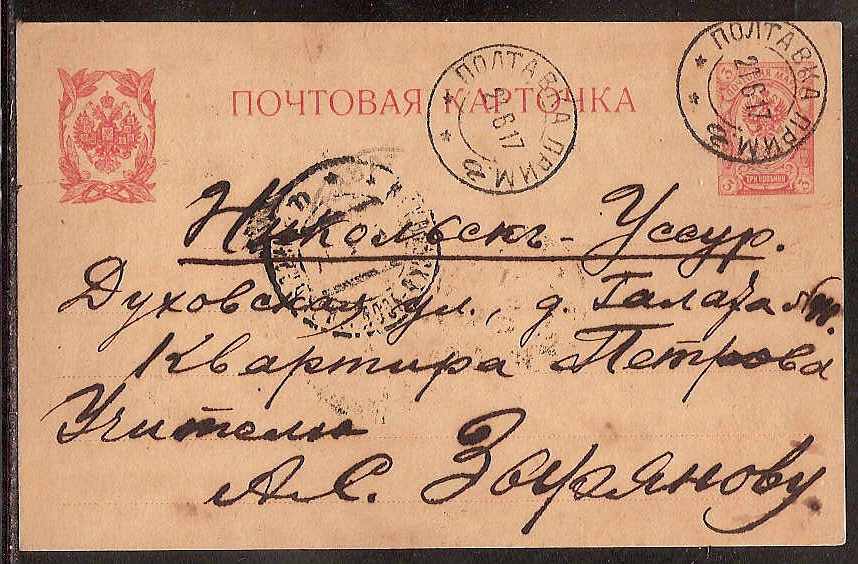 ПОЧТОВАЯ КАРТОЧКА
ПОЛТАВКА ПРИМ
6 17
ПОЛТАВКА ПРИМ
6 17
ТРИ КОПѢЙКИ
Никольскъ-Уссур.
Духовская ул., д. Галаза
Квартира Петрова
Учителю
А. С. Зырянову